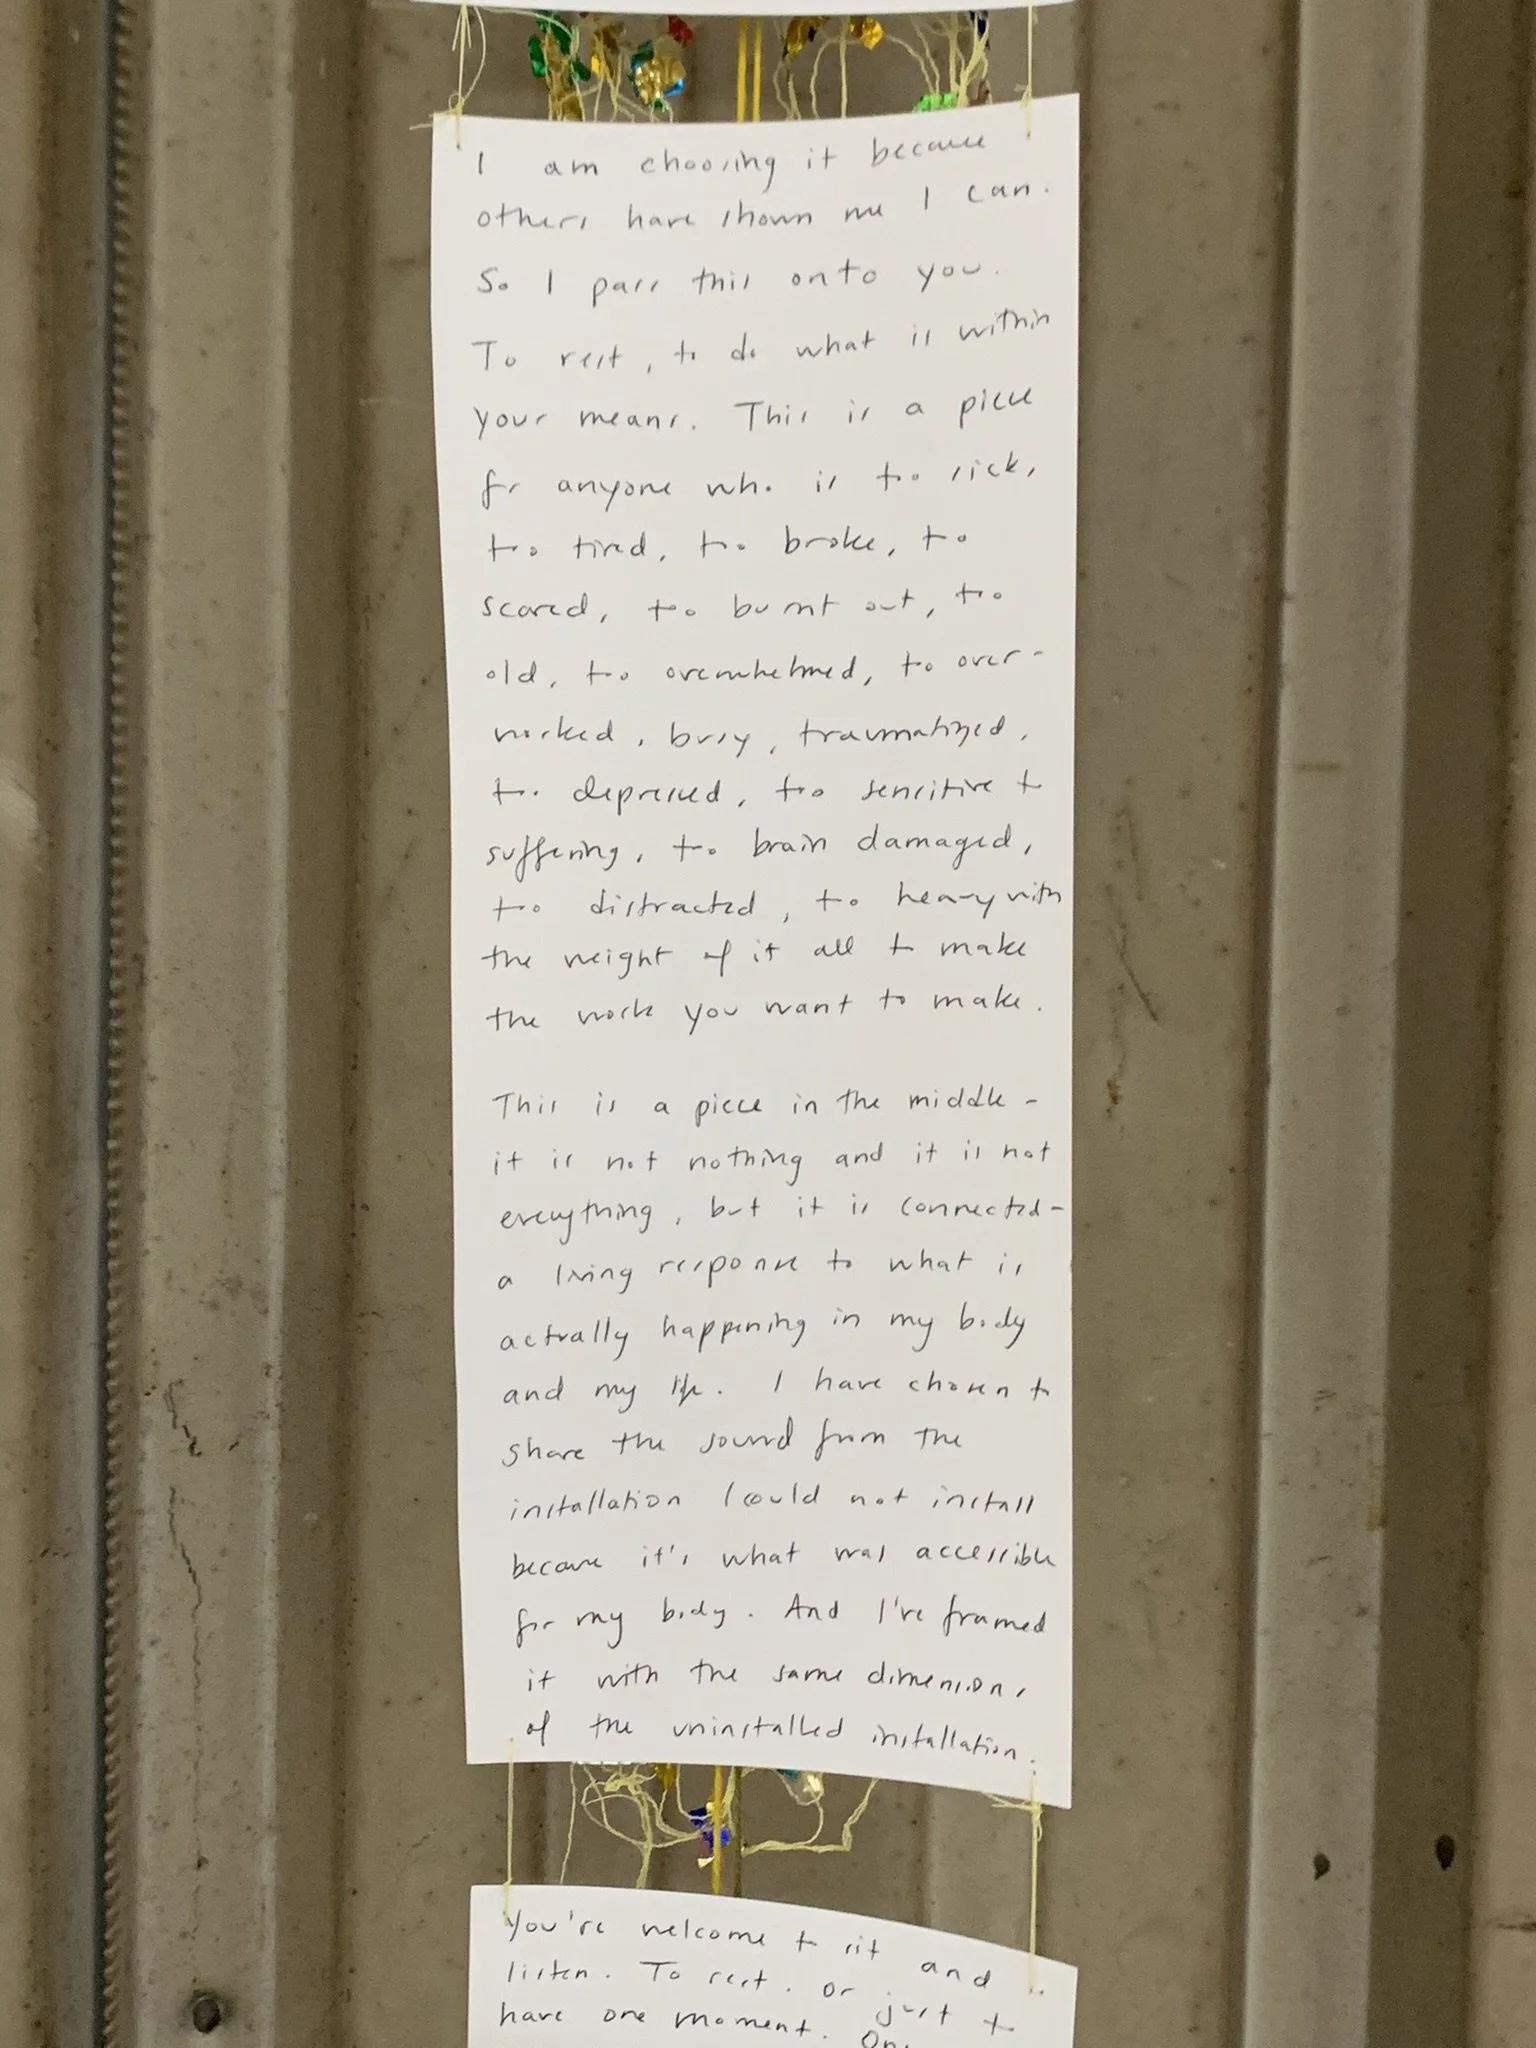 I am choosing it because
others have shown me I can.
So I pass this onto you.
To rest, to do what is within
your means. This is a piece
for anyone who is too sick,
too tired, too broke, too
scared, too burnt out, too
old, too overwhelmed, too over-
worked, busy, traumatized,
too depressed, too sensitive to
suffering, too brain damaged,
too distracted, too heavy with
the weight of it all to make
the work you want to make.
This is a piece in the middle -
it is not nothing and it is not
everything, but it is connected -
a living response to what is
actually happening in my body
and my life. I have chosen to
share the sound from the
installation I could not install
because it's what was accessible
for my body. And I've framed
it with the same dimensions
of the uninstalled installation.
You're welcome to sit and
listen. To rest. or just to
have one moment.